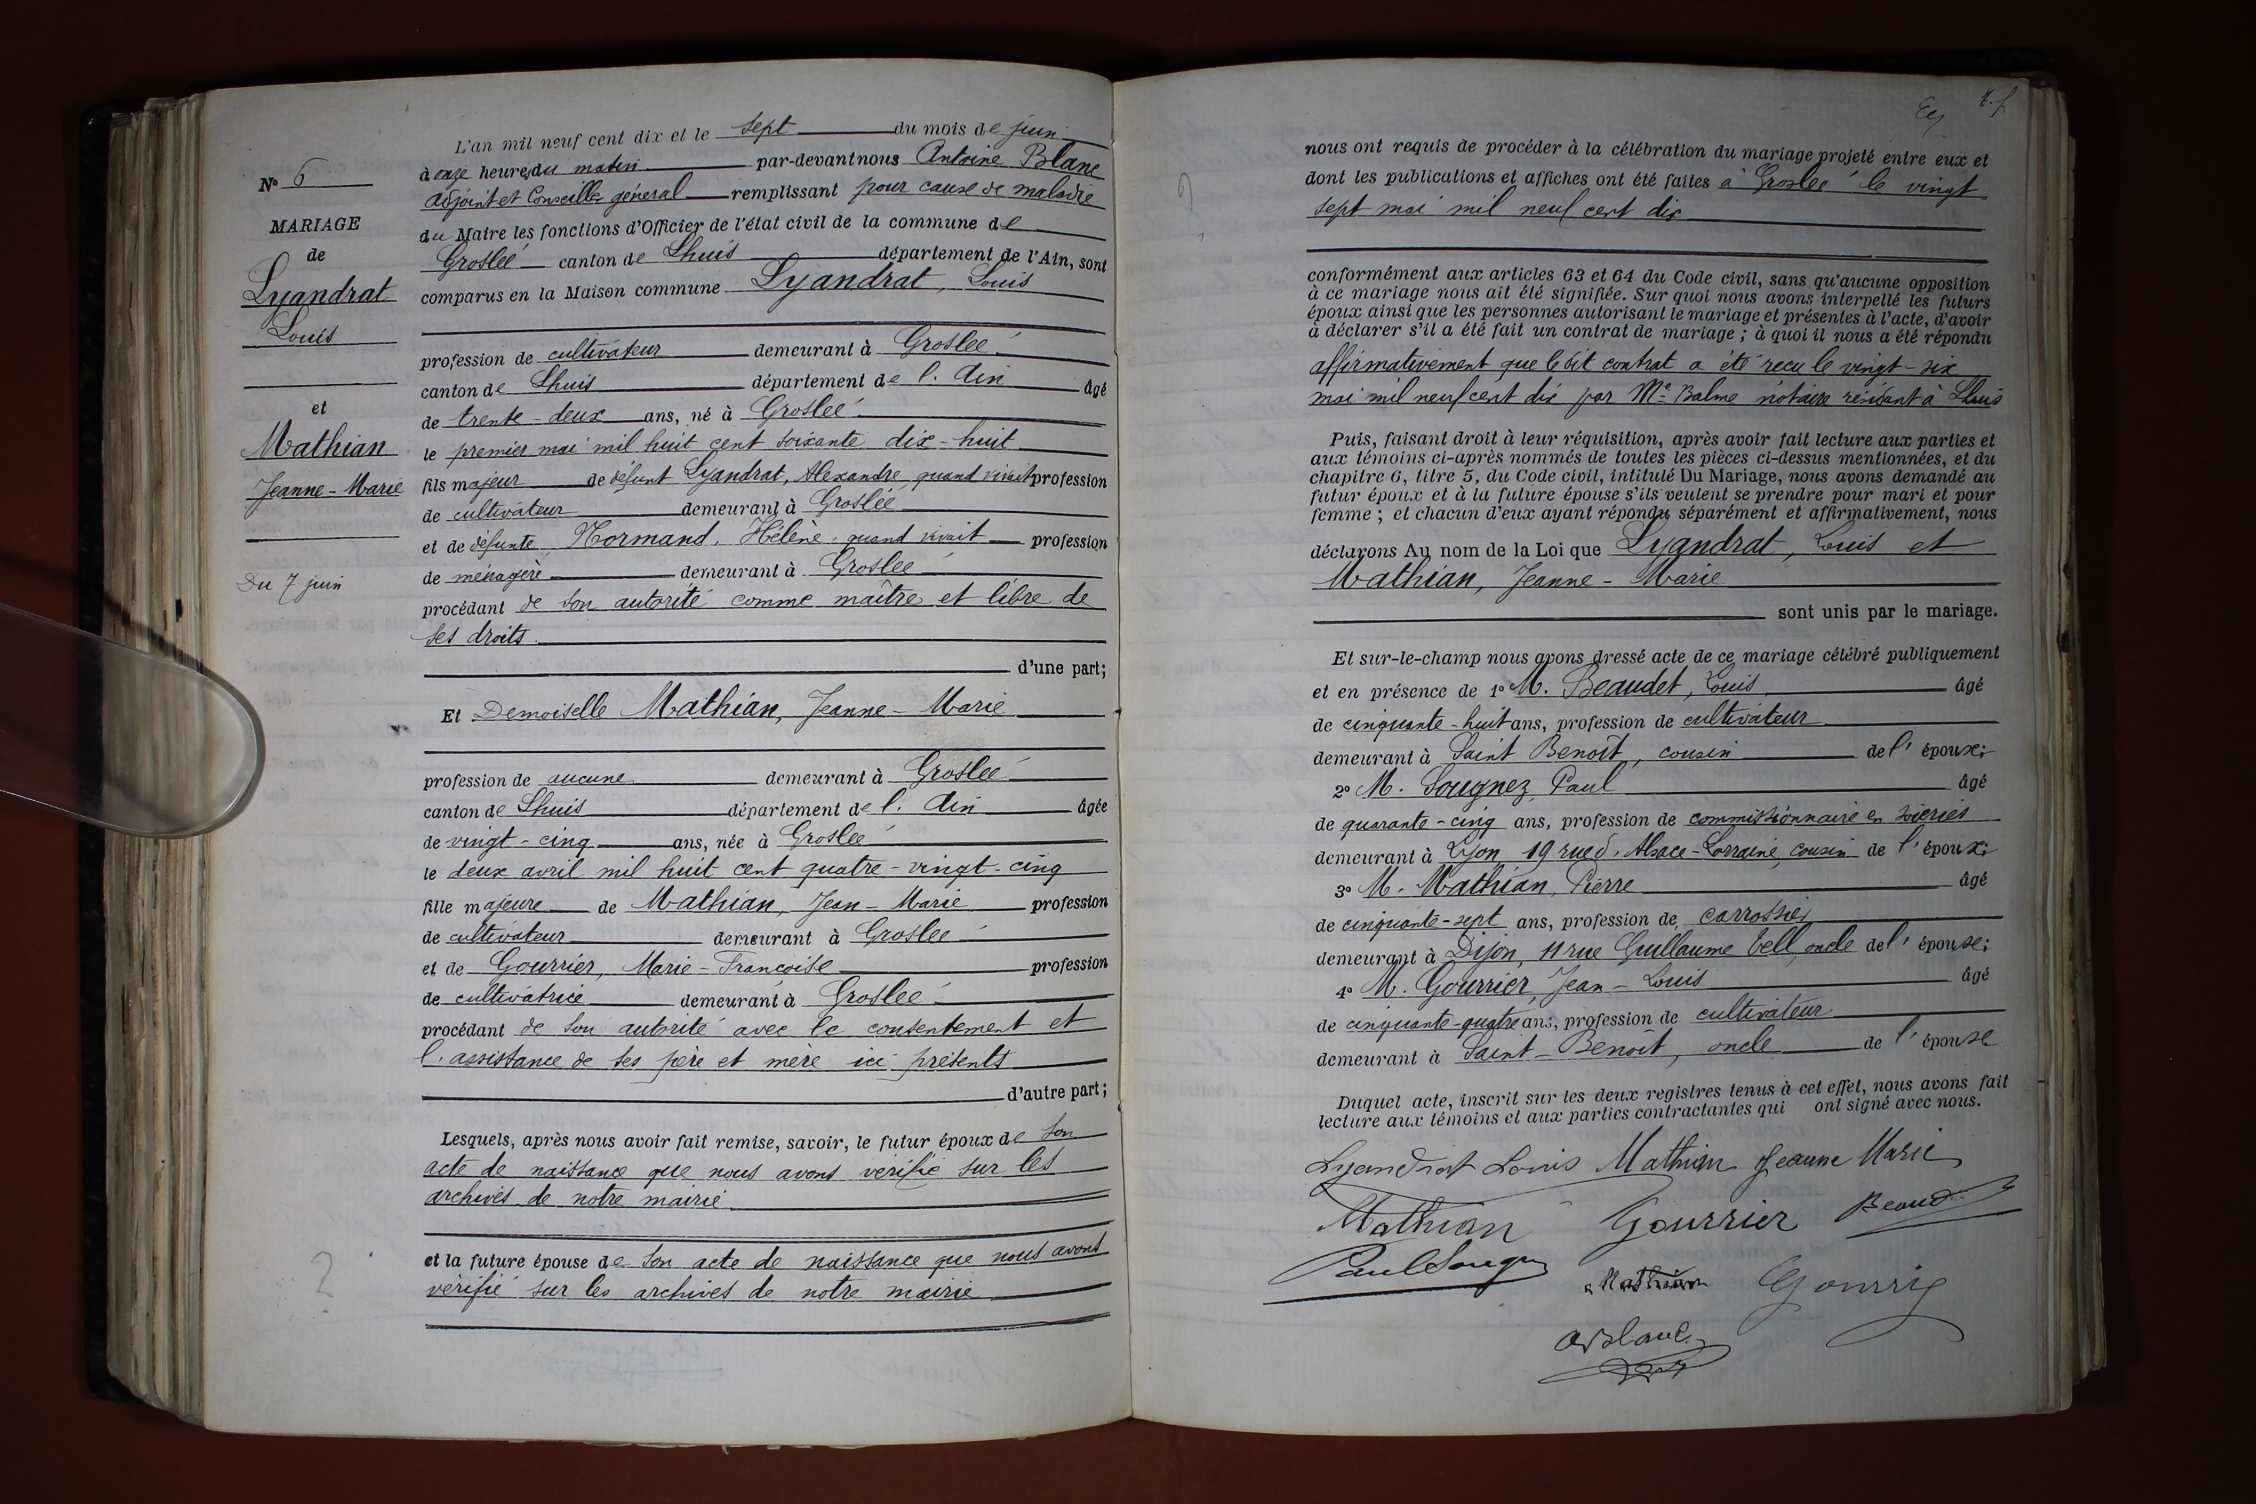 N° 6
MARIAGE
de
Lyandrat
Louis
et
Mathian
Jeanne-Marie
Du 7 juin
L'an mil neuf cent dix et le sept du mois de juin
à onze heures du matin par-devant nous Antoine Blanc
adjoint et Conseiller général remplissant pour cause de maladie
du Maire les fonctions d'Officier de l'état civil de la commune de
Groslée canton de Lhuis département de l'Ain, sont
comparus en la Maison commune Lyandrat, Louis
profession de cultivateur demeurant à Groslée
canton de Lhuis département de l'Ain âgé
de trente-deux ans, né à Groslée
le premier mai mil huit cent soixante dix-huit
fils majeur de défunt Lyandrat, Alexandre quand vivait profession
de cultivateur demeurant à Groslée
et de défunte Normand, Hélène, quand vivait profession
de ménagère demeurant à Groslée
procédant de son autorité comme maître et libre de
ses droits
d'une part;
Et Demoiselle Mathian, Jeanne-Marie
profession de aucune demeurant à Groslée
canton de Lhuis département de l'Ain âgée
de vingt-cinq ans, née à Groslée
le deux avril mil huit cent quatre-vingt-cinq
fille majeure de Mathian, Jean-Marie profession
de cultivateur demeurant à Groslée
et de Gourrier, Marie-Françoise profession
de cultivatrice demeurant à Groslée
procédant de son autorité avec le consentement et
l'assistance de ses père et mère ici présents
d'autre part;
Lesquels, après nous avoir fait remise, savoir, le futur époux de son
acte de naissance que nous avons vérifié sur les
archives de notre mairie
et la future épouse de son acte de naissance que nous avons
vérifié sur les archives de notre mairie
2
nous ont requis de procéder à la célébration du mariage projeté entre eux et
dont les publications et affiches ont été faites à Groslée le vingt
sept mai mil neuf cent dix
conformément aux articles 63 et 64 du Code civil, sans qu'aucune opposition
à ce mariage nous ait été signifiée. Sur quoi nous avons interpellé les futurs
époux ainsi que les personnes autorisant le mariage et présentes à l'acte, d'avoir
à déclarer s'il a été fait un contrat de mariage; à quoi il nous a été répondu
affirmativement que le dit contrat a été reçu le vingt-six
mai mil neuf cent dix par Me Balme notaire résidant à Lhuis
Puis, faisant droit à leur réquisition, après avoir fait lecture aux parties et
aux témoins ci-après nommés de toutes les pièces ci-dessus mentionnées, et du
chapitre 6, titre 5, du Code civil, intitulé Du Mariage, nous avons demandé au
futur époux et à la future épouse s'ils veulent se prendre pour mari et pour
femme; et chacun d'eux ayant répondu séparément et affirmativement, nous
déclarons Au nom de la Loi que Lyandrat, Louis et
Mathian, Jeanne-Marie
sont unis par le mariage.
Et sur-le-champ nous avons dressé acte de ce mariage célébré publiquement
et en présence de 1° M. Beaudet, Louis âgé
de cinquante-huit ans, profession de cultivateur
demeurant à Saint Benoît, cousin de l'époux;
2° M. Sougnez Paul âgé
de quarante-cinq ans, profession de commissionnaire en soieries
demeurant à Lyon, 19 rue d'Alsace-Lorraine, cousin de l'époux;
3° M. Mathian, Pierre âgé
de cinquante-sept ans, profession de carrossier
demeurant à Dijon, 11 rue Guillaume Tell, oncle de l'épouse;
4° M. Gourrier, Jean-Louis âgé
de cinquante-quatre ans, profession de cultivateur
demeurant à Saint-Benoit, oncle de l'épouse
Duquel acte, inscrit sur les deux registres tenus à cet effet, nous avons fait
lecture aux témoins et aux parties contractantes qui ont signé avec nous.
Lyandrat Louis Mathian Jeanne Marie
Mathian Gourrier
Mathian